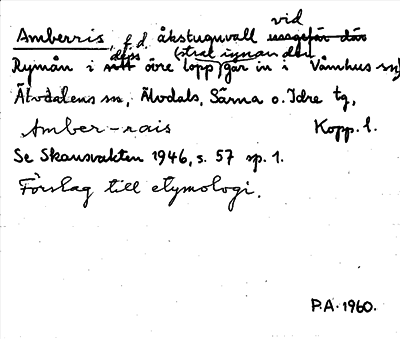 Amberris, f.d. åkstuguvall vid ungefär där
Rymån i sitt dess övre lopp (strax innan den går in i Våmhus sn)
Älvdalens sn, Älvdals, Särna o. Idre tg,
Amber-rais Kopp. l.
Se Skansvakten 1946, s. 57 sp. 1.
Förslag till etymologi.
P.A. 1960.